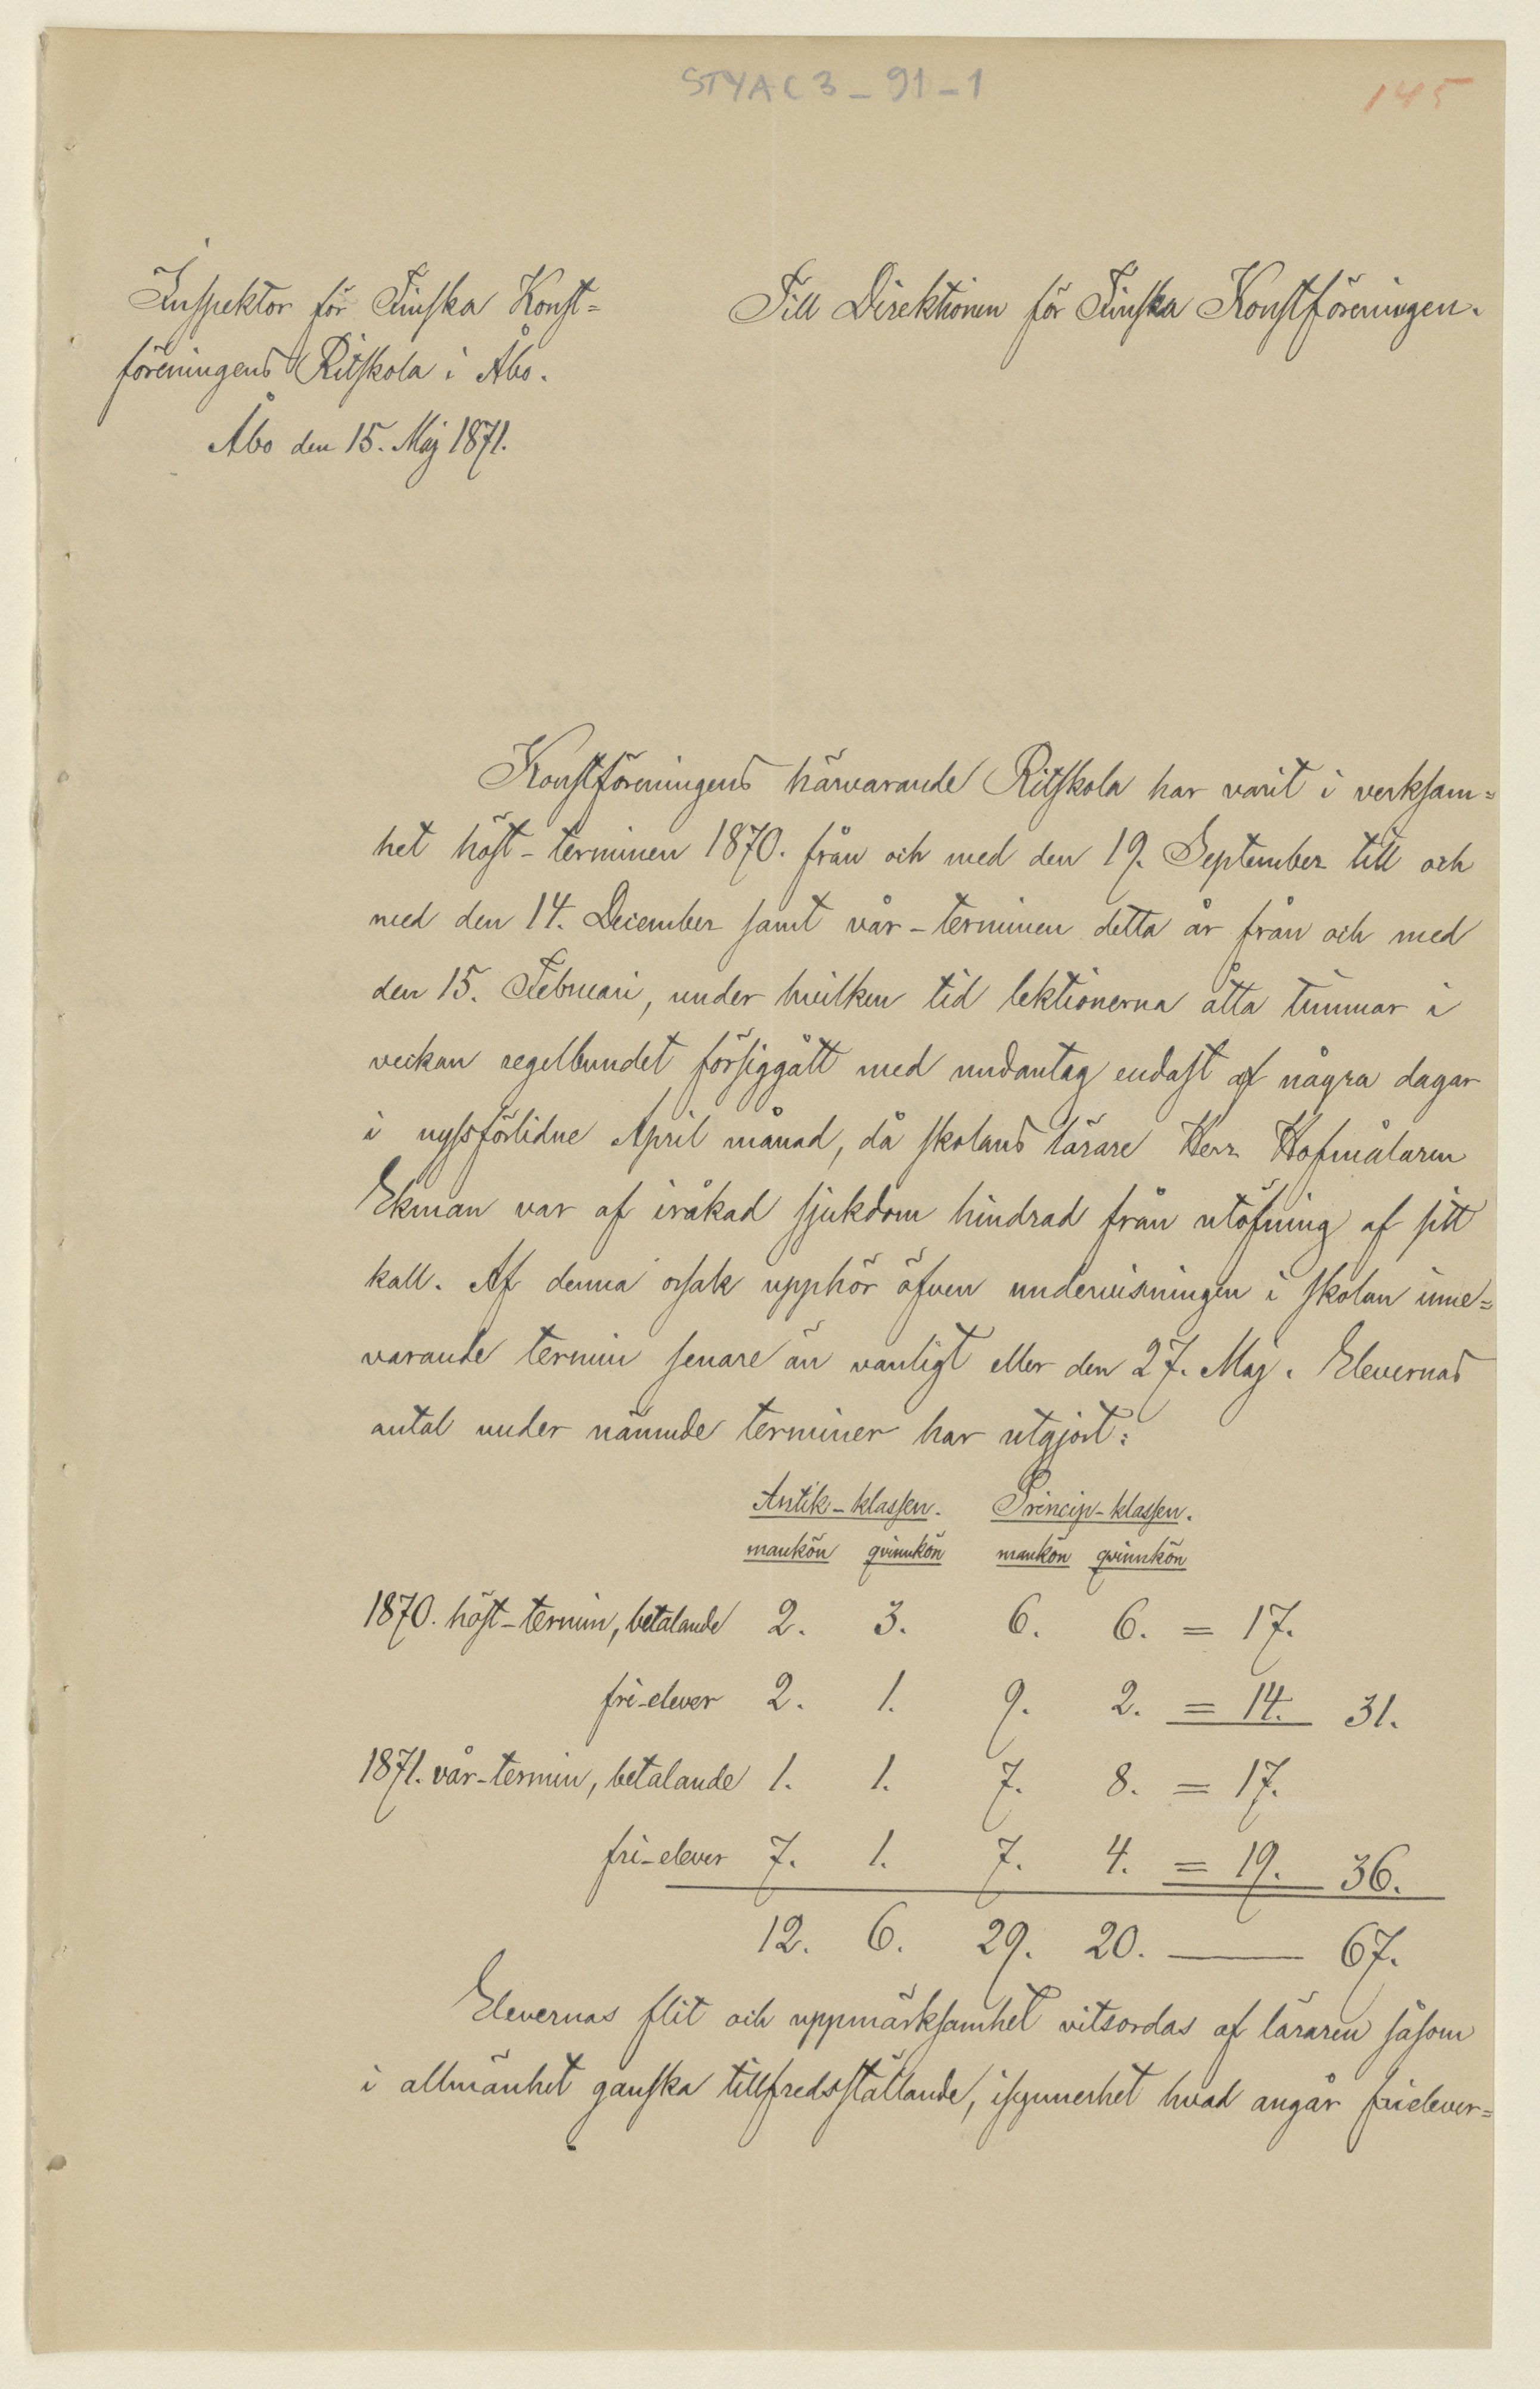 STYA C 3 _ 91 _ 1
145
Inspektor för Finska Konst=
föreningens Ritskola i Åbo.
Åbo den 15. Maj 1871.
Till Direktionen för Finska Konstföreningen.
Konstföreningens härvarande Ritskola har varit i verksam=
het höst-terminen 1870. från och med den 19. September till och
med den 14. December samt vår-terminen detta år från och med
den 15. Februari, under hvilken tid lektionerna åtta timmar i
veckan regelbundet försiggått med undantag endast af några dagar
i nyssförlidne April månad, då skolans lärare Herr Hofmålaren
Ekman var af iråkad sjukdom hindrad från utöfning af sitt
kall. Af denna orsak upphör äfven undervisningen i skolan inne=
varande termin senare än vanligt eller den 27. Maj. Elevernas
antal under nämnde terminer har utgjort:
Antik-klassen. Princip-klassen.
mankön qvinnkön mankön qvinnkön
1870. höst-termin, betalande 2. 3. 6. 6. = 17.
fri-elever 2. 1. 9. 2. = 14. 31.
1871. vår-termin, betalande 1. 1. 7. 8. = 17.
fri-elever 7. 1. 7. 4. = 19. 36.
12. 6. 29. 20. — 67.
Elevernas flit och uppmärksamhet vitsordas af läraren såsom
i allmänhet ganska tillfredsställande, isynnerhet hvad angår frielever=